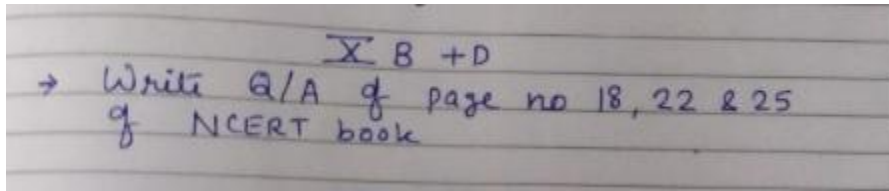 X B + D
→ Write Q/A of page no 18, 22 & 25
of NCERT book